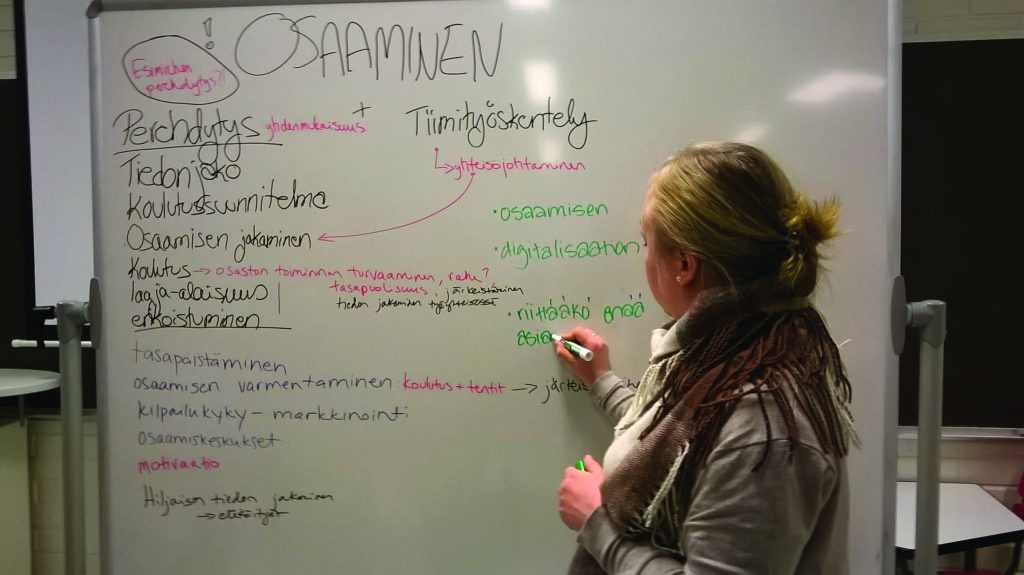 !
OSAAMINEN
Esimiehen
perehdytys?!
Perehdytys yhdenmukaisuus +
Tiimityöskentely
↳ yhteisöjohtaminen
Tiedon jako
Koulutussuunnitelma
Osaamisen jakaminen
Koulutus → osaston toiminnan turvaaminen, raha?
tasapuolisuus, järkeistäminen
tiedon jakaminen työyhteisössä
laaja-alaisuus
erikoistuminen
· osaamisen
· digitalisaation
· riittääkö enää
asia
tasapäistäminen
osaamisen varmentaminen koulutus + tentit →
kilpailukyky - markkinointi
osaamiskeskukset
motivaatio
Hiljaisen tiedon jakaminen
→